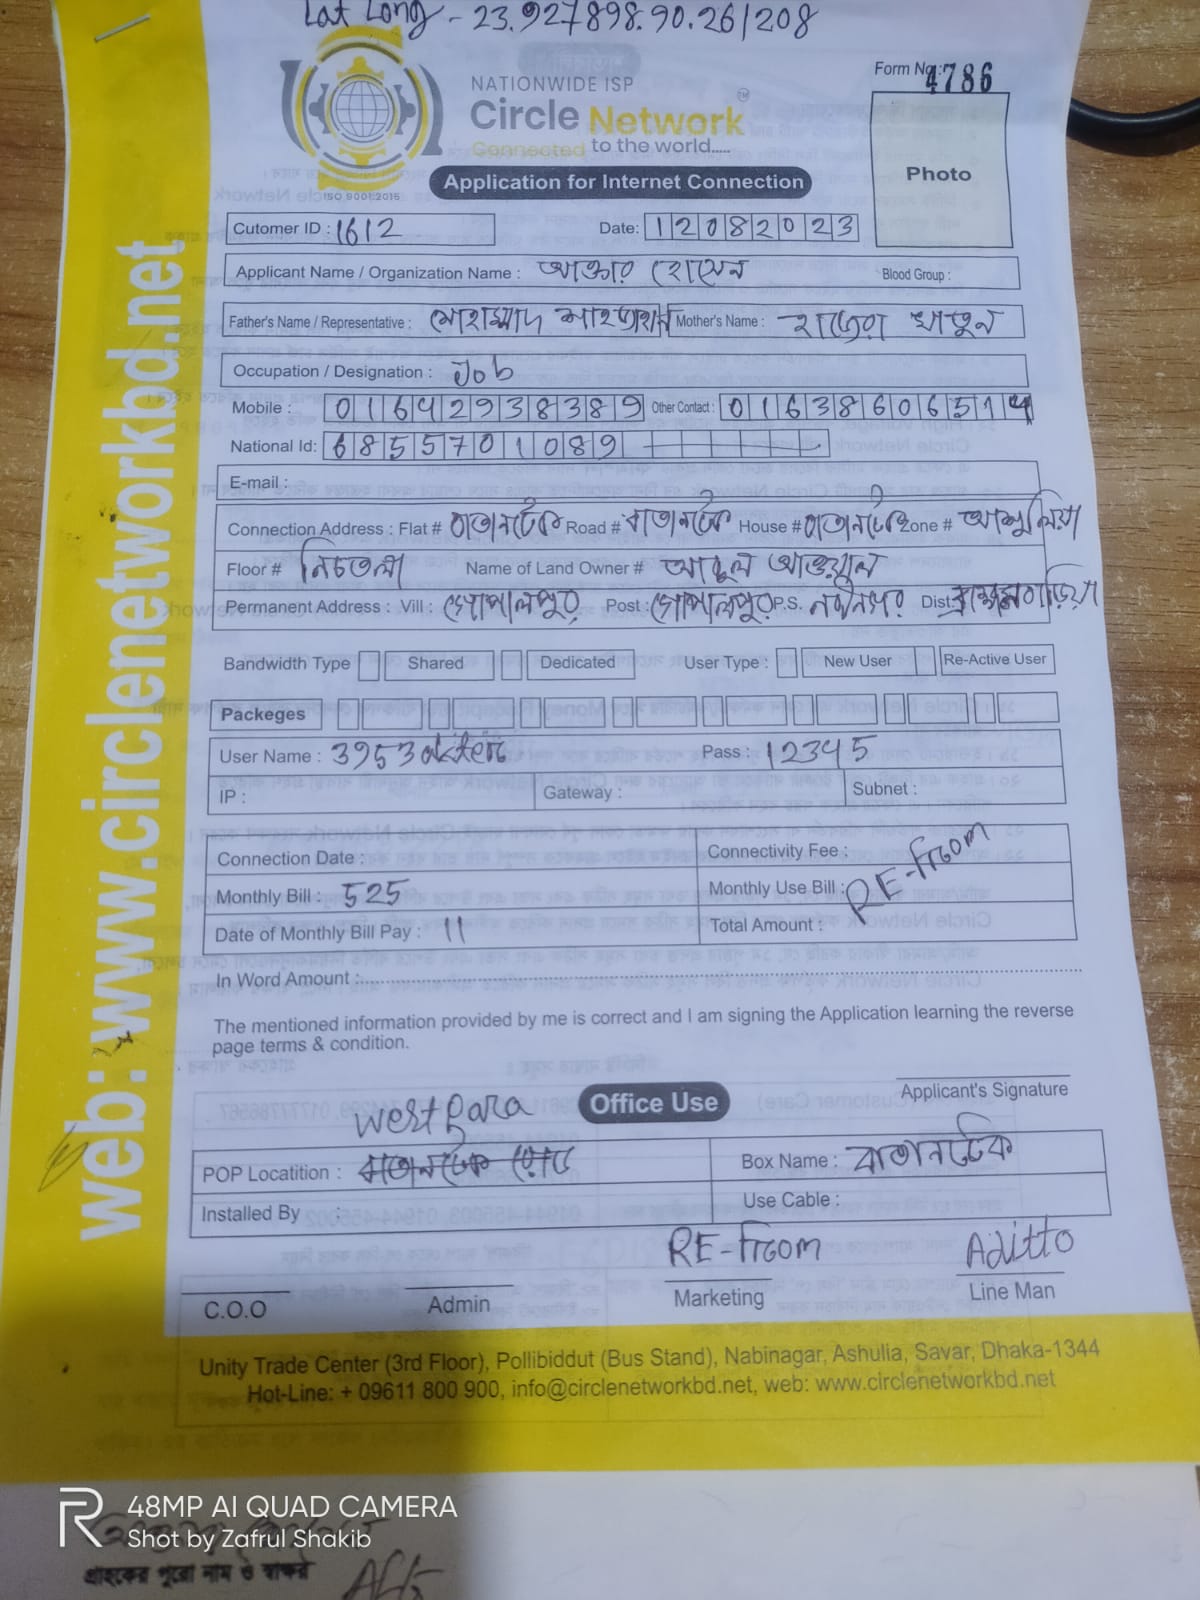 Lat Long - 23.927898.90.261208
Form No: 4786
NATIONWIDE ISP
Circle Network TM
Connected to the world.....
ISO 9001:2015
Application for Internet Connection
Photo
Cutomer ID : 1612 Date: 12082023
Applicant Name / Organization Name : আক্তার হোসেন Blood Group :
Father's Name / Representative : মোহাম্মদ Mother's Name : হাজেরা খাতুন
Occupation / Designation : Job
Mobile : 01642938389 Other Contact : 01638606514
National Id: 6855701089
E-mail :
Connection Address : Flat # বাতানটেক Road # বাতানটেক House # বাতানটেক Zone # আশুলিয়া
Floor # নিচতলা Name of Land Owner # আব্দুল আওয়াল
Permanent Address : Vill : গোপালপুর Post : গোপালপুর P.S. নবীনগর Dist. ব্রাহ্মনবাড়িয়া
Bandwidth Type Shared Dedicated User Type : New User Re-Active User
Packeges
User Name : 3953akter Pass : 12345
IP : Gateway : Subnet :
Connection Date : Connectivity Fee :
Monthly Bill : 525 Monthly Use Bill : RE-from
Date of Monthly Bill Pay : 11 Total Amount :
In Word Amount :
The mentioned information provided by me is correct and I am signing the Application learning the reverse
page terms & condition.
Applicant's Signature
Office Use
west para
POP Locatition : বাতানটেক রোড Box Name : বাতানটেক
Installed By : Use Cable :
RE-from Aditto
C.O.O Admin Marketing Line Man
Unity Trade Center (3rd Floor), Pollibiddut (Bus Stand), Nabinagar, Ashulia, Savar, Dhaka-1344
Hot-Line: + 09611 800 900, info@circlenetworkbd.net, web: www.circlenetworkbd.net
web: www.circlenetworkbd.net
48MP AI QUAD CAMERA
Shot by Zafrul Shakib
গ্রাহকের পুরো নাম ও স্বাক্ষর